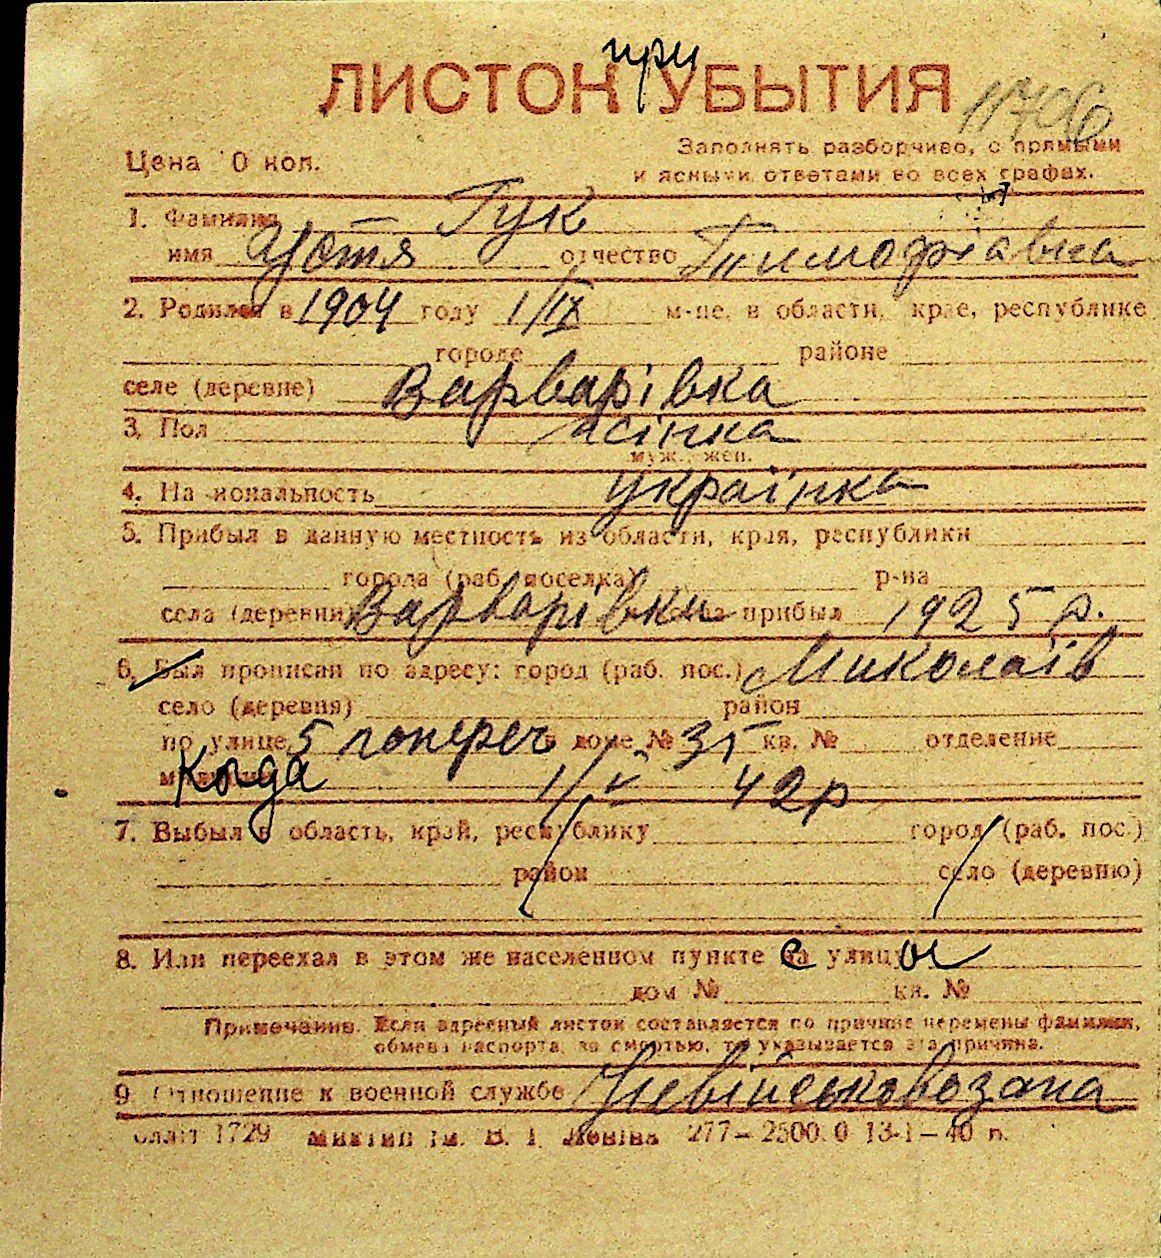 при
ЛИСТОК УБЫТИЯ
11706
Цена 10 коп.
Заполнять разборчиво, с прямыми
и ясными ответами во всех графах.
1. Фамилия Гук
имя Устя отчество Тимофіавна
2. Родился в 1904 году 1/IX м-це, в области, крае, республике
городе районе
селе (деревне) Варварівка
3. Пол жінка
муж., жен.
4. Национальность українка
5. Прибыл в данную местность из области, края, республики
города (раб. поселка) р-на
села (деревни) Варварівки прибыл 1925 р.
6. Был прописан по адресу: город (раб. пос.) Миколаїв
село (деревня) район
по улице 5 попереч в доме № 35 кв. № отделение
Когда 42р
7. Выбыл в область, край, республику город (раб. пос.)
район село (деревню)
8. Или переехал в этом же населенном пункте с улицы
дом № кв. №
Примечание. Если адресный листок составляется по причине перемены фамилии,
обмена паспорта, за смертью, то указывается эта причина.
9. Отношение к военной службе Невійськовозана
1729 ім. В. І. Леніна 277—2500.0 13-1—40 п.